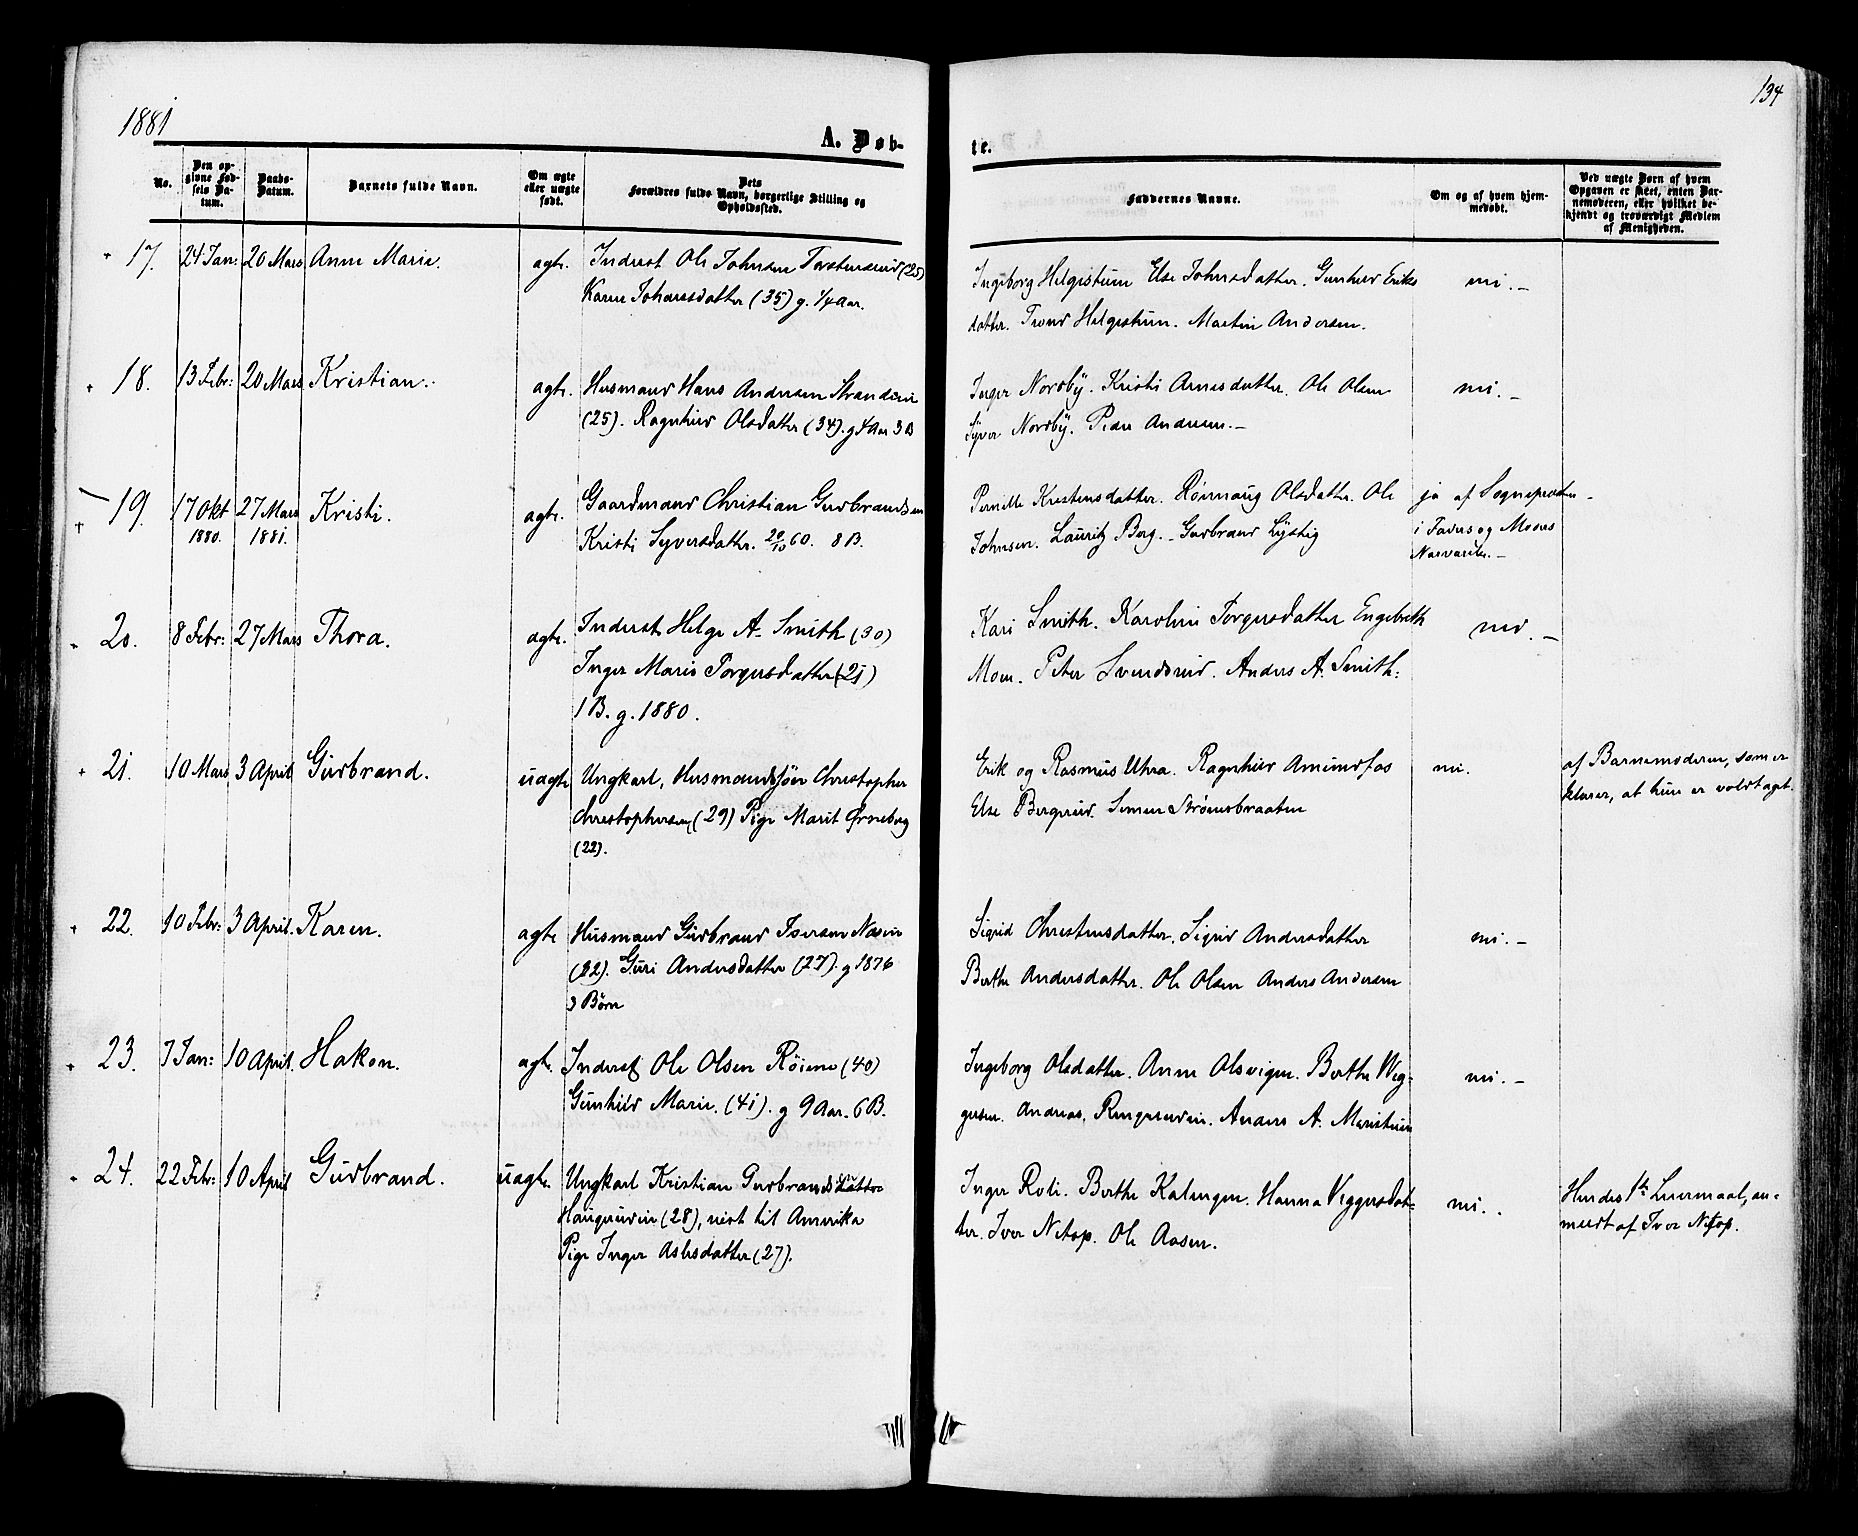 1881
134
A. Døb-
te.
No.
Den op-
givne Fød-
sels Da-
tum.
Daabs-
Datum.
Barnets fulde Navn.
Om ægte
eller uægte
født.
Dets
Forældres fulde Navn, borgerlige Stilling og
Opholdssted.
Faddernes Navne.
Om og af hvem hjem-
medøbt.
Ved uægte Børn af hvem
Opgaven er skeet, enten Bar-
nemoderen, eller hvilket be-
kjendt og troværdigt Medlem
af Menigheden.
17. 24 Jan: 20 Mars Anne Marie. ægte. Inderst Ole Johnsen (25)
Karen Johansdatter (35) g. 1/4 Aar.
Ingeborg Helgestuen Else Johnsdatter. Gunhild Eriks
datter. Trond Helgestuen. Martin Andersen.
nei. -
18. 13 Febr: 20 Mars Kristian. ægte. Husmand Hans Andersen Stranden
(25). Ragnhild Olsdatter (34). g 4 Aar 3 B
Inger Nordby. Kristi Arnesdatter. Ole Olsen
Syver Nordby. Peder Andersen. -
nei. -
19. 17 Okt 27 Mars Kristi. ægte. Gaardmand Christian Gudbrandsen
1880. 1881.
Kristi Syversdatter. 20/10 60. 8 B.
Pernille Kristensdatter. Rönnaug Olsdatter. Ole
Johnsen. Lauritz Borg. - Gudbrand Lystig
ja af Sognepræsten
i Faders og Moders
Nærværelse. -
20. 8 Febr: 27 Mars Thora. ægte. Inderst Helge A. Smith (30)
Inger Marie Torgersdatter (21)
1 B. g. 1880.
Kari Smith. Karoline Torgersdatter Engebreth
Moen. Peter Svendsrud. Anders A. Smith.
nei. -
21. 10 Mars 3 April Gudbrand. uægte Ungkarl, Husmandssøn Christopher
Christophersen (29) Pige Marit Ørneberg
(22).
Erik og Rasmus Uhra. Ragnhild Amundfos
Else Bergerud. Simen Strømsbraaten
nei.
af Barnemoderen, som er
klærer, at hun er voldtaget.
22. 10 Febr: 3 April. Karen. ægte Husmand Gudbrand Iversen Næsen
(22). Guri Andersdatter (27). g 1876
3 Børn
Sigrid Christensdatter. Sigrid Andersdatter
Berthe Andersdatter. Ole Olsen Anders Andersen
nei. -
23. 7 Jan: 10 April. Hakon. ægte. Inderst Ole Olsen Röiene (40)
Gunhild Marie. (41). g 9 Aar. 6 B.
Ingeborg Olsdatter. Anne Olsvigen. Berthe Weg-
gesen. Andreas. Ringerudin. Anders A.
nei. -
24. 22 Febr: 10 April Gudbrand. uægte. Ungkarl Kristian Gudbrandsdatter
Haugerudin (28), reist til Amerika
Pige Inger Aslesdatter (27).
Inger Roli. Berthe Kalengen. Hanna Viggersdat-
ter. Iver Netop. Ole Aasen.
nei.
Hendes 1ste Leiermaal, an-
meldt af Iver Netop.